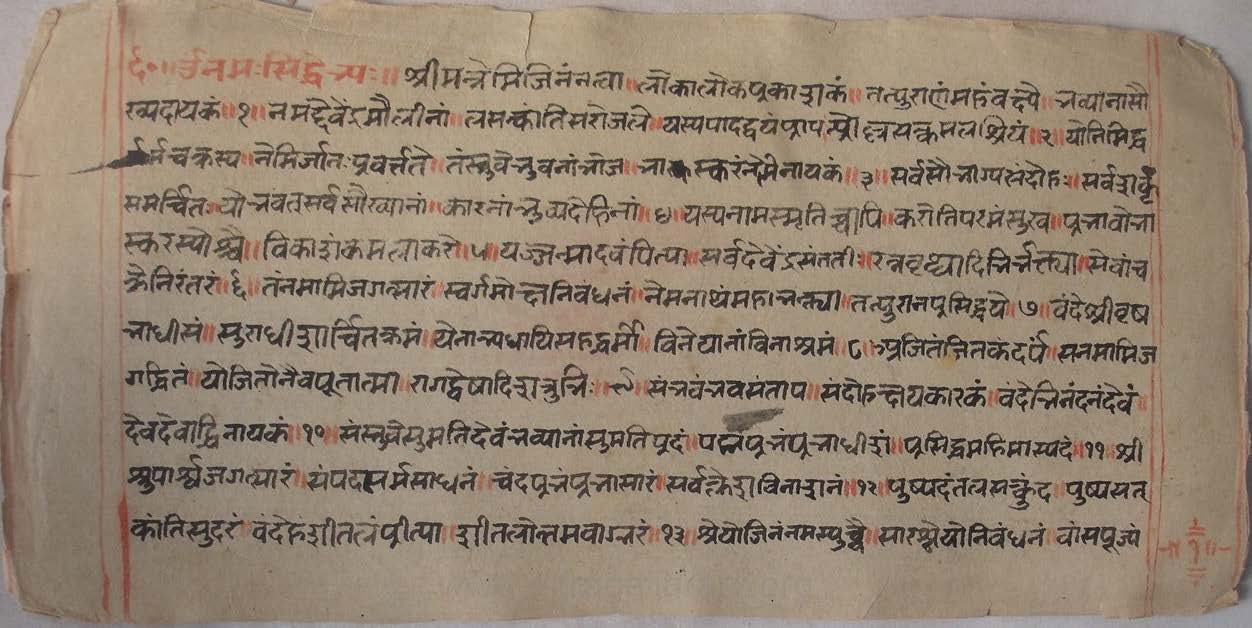 ६०॥ र्उनमःसिद्धेभ्यः॥ श्रीमन्नेमिजिनंनत्वा॥ लोकालोकप्रकाशकं॥ तत्पुराणमहंवद्ये॥ भव्यानासौ
ख्यदायकं॥ १॥ नमद्देवेंद्रमौलीनां॥ लसत्कांतिसरोजले॥ यस्यपादद्वयं
र्मचक्रस्य॥ नेमिर्जातःप्रवर्त्तते॥ तंस्तुवेभुवनांभोज॥ भास्करंनेमिनायकं॥ ३॥ सर्वसौभाग्यसंदोहः॥ सर्वशक्रैः
समर्चितः॥ योभवत्सर्वसौख्यानां॥ कारनांभुव्यदेहिनां॥ ४॥ यस्यनामस्मृतिच्चापि॥ करोतिपरमंसुख॥ प्रभावोभा
स्करस्योश्चै॥ विकाशंकमलाकरो॥ ५॥ यज्जन्मादवंपित्पा॥ सर्वदेवेंद्रसंतती॥ रत्नवृष्ट्यादिभिर्भक्त्या॥ सेवांच
क्रेनिरंतरां॥ ६॥ तंनमामिजगत्सारं॥ स्वर्गमोक्षनिवंधनं॥ नेमनाथंमहाभक्त्या॥ तत्पुरानप्रसिद्धये॥ ७॥ वंदेश्रीवृष
भाधीसं॥ सुराधीशार्च्चितक्रमं॥ येनाभ्यधायिसद्धर्मो॥ विनेयानांविनाश्रमं॥ ८॥ अजितंजितकंदर्पं॥ सनमामिज
गद्धितं॥ योजितोनैवपूतात्मा॥ रागद्वेषादिशत्रुभिः॥ ९॥ संभवंभवसंताप॥ संदोहक्षयकारकं॥ वंदेभिनंदनंदेवं॥
देवदेवाद्विनायकं॥ १०॥ संस्तुवेसुमतिदेवंभव्यानांसुमतिप्रदं॥ पद्मप्रभंप्रभाधीशं॥ प्रसिद्धमहिमास्पदं॥ ११॥ श्री
श्रुपार्श्वजगत्सारं॥ संपदासर्मसाधनं॥ चंदप्रभंप्रभासारं॥ सर्वक्लेशविनाशनं॥ १२॥ पुष्पदंतलसत्कुंद॥ पुष्पसत्
कांतिसुदरं॥ वंदेहंशीतलंप्रीत्या॥ शीतलोत्तमवाग्भरं॥ १३॥ श्रेयोजिनंनमस्युच्चै॥ सारश्रेयोनिवंधनं॥ वांसपूज्यं
१